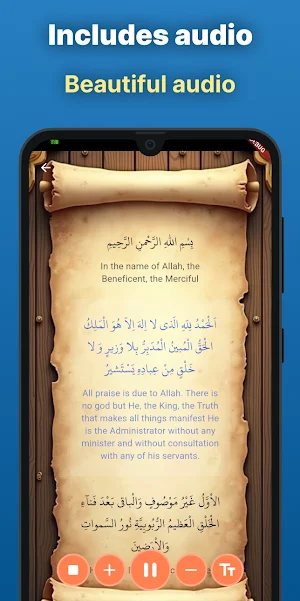 Includes audio
Beautiful audio
بِسْمِ اللهِ الرَّحْمٰنِ الرَّحِيمِ
In the name of Allah, the
Beneficent, the Merciful
اَلْحَمْدُ لِلّٰهِ الَّذى لا اِلهَ اِلاَّ هُوَ الْمَلِكُ
الْحَقُّ الْمُبينُ الْمُدَبِّرُ بِلا وَزيرٍ وَلا
خَلْقٍ مِنْ عِبادِهِ يَسْتَشيرُ
All praise is due to Allah. There is
no god but He, the King, the Truth
that makes all things manifest He
is the Administrator without any
minister and without consultation
with any of his servants.
الاْوَّلُ غَيْرُ مَوْصُوفٍ وَالْباقى بَعْدَ فَنآءِ
الْخَلْقِ الْعَظيمُ الرُّبُوبِيَّةِ نُورُ السَّمواتِ
وَالاْرَضينَ
TT